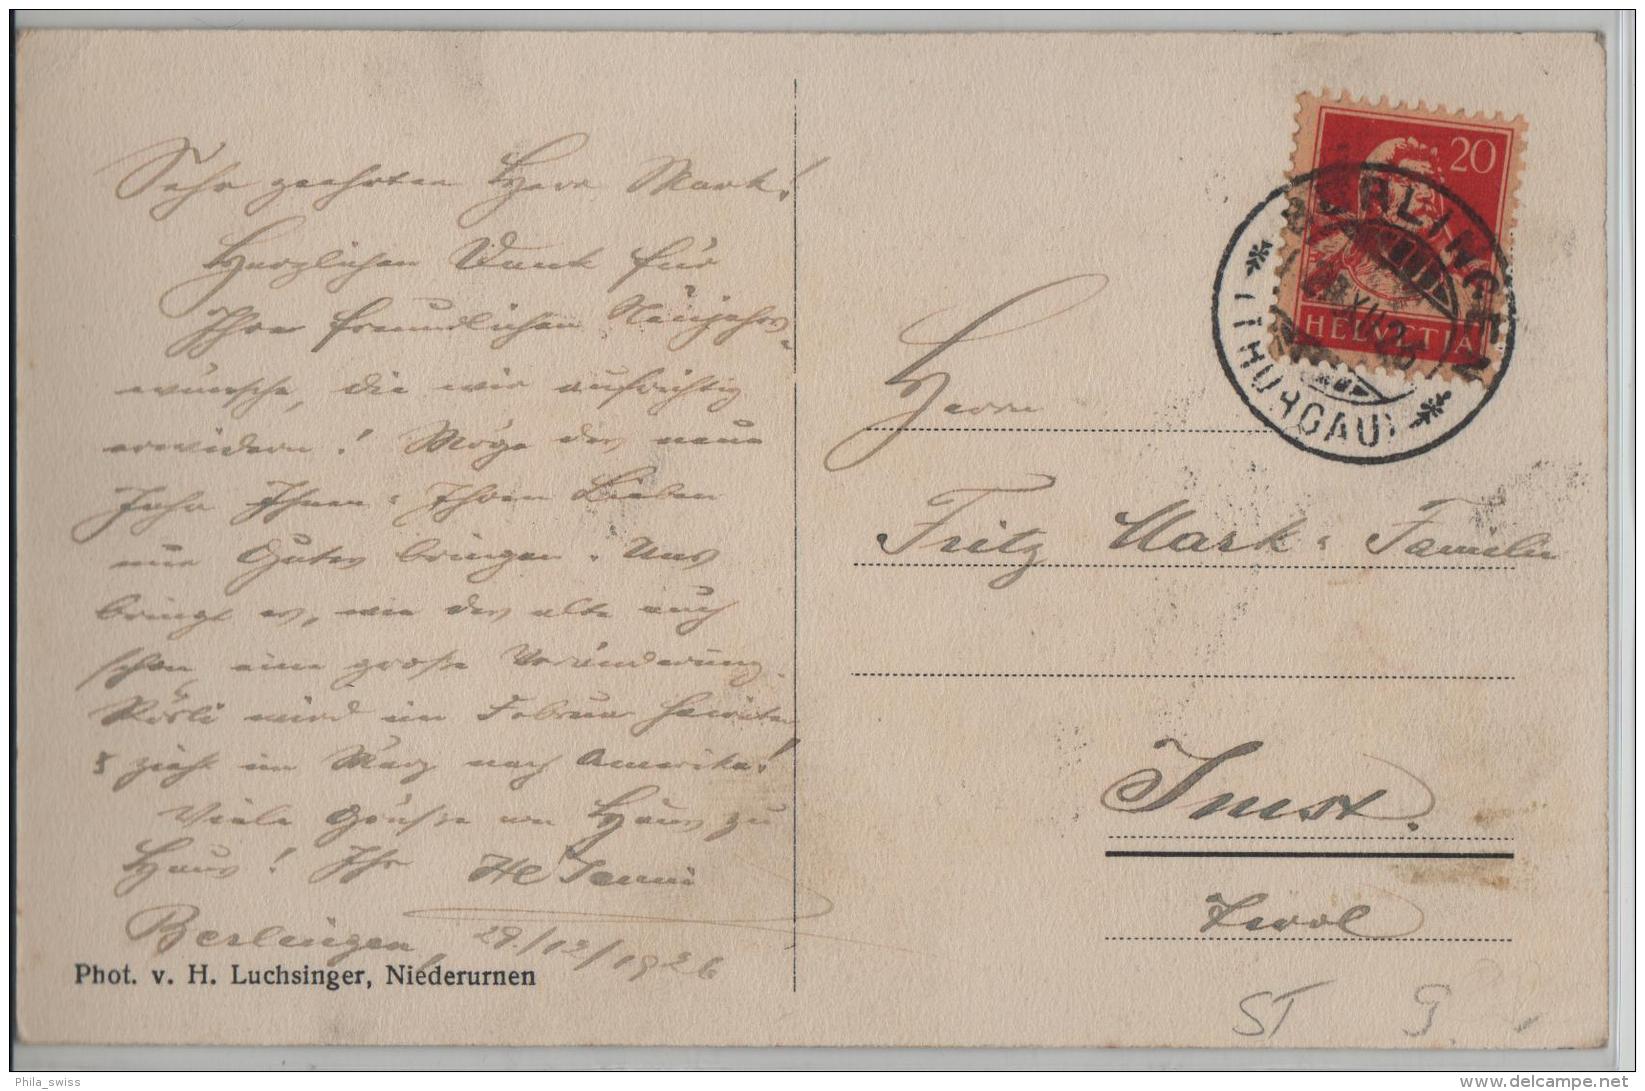 Sehr geehrter Herr Mark!
Herzlichen Dank für
Ihre freundlichen Neujahrs-
wünsche, die wir aufrichtig
erwidern! Möge das neue
Jahr Ihnen & Ihren Lieben
nur Gutes bringen. Uns
bringt es, wie das alte auch
schon eine große Veränderung.
Rösli wird im Februar heiraten
& zieht im März nach Amerika!
Viele Grüsse von Haus zu
Haus! Ihr
Berlingen, 29/12/1926
Phot. v. H. Luchsinger, Niederurnen
20
HELVETIA
BERLINGEN
(THURGAU)
Herrn
Fritz Mark & Familie
Imst.
Tirol
ST 9
Phila_swiss
delcampe.net